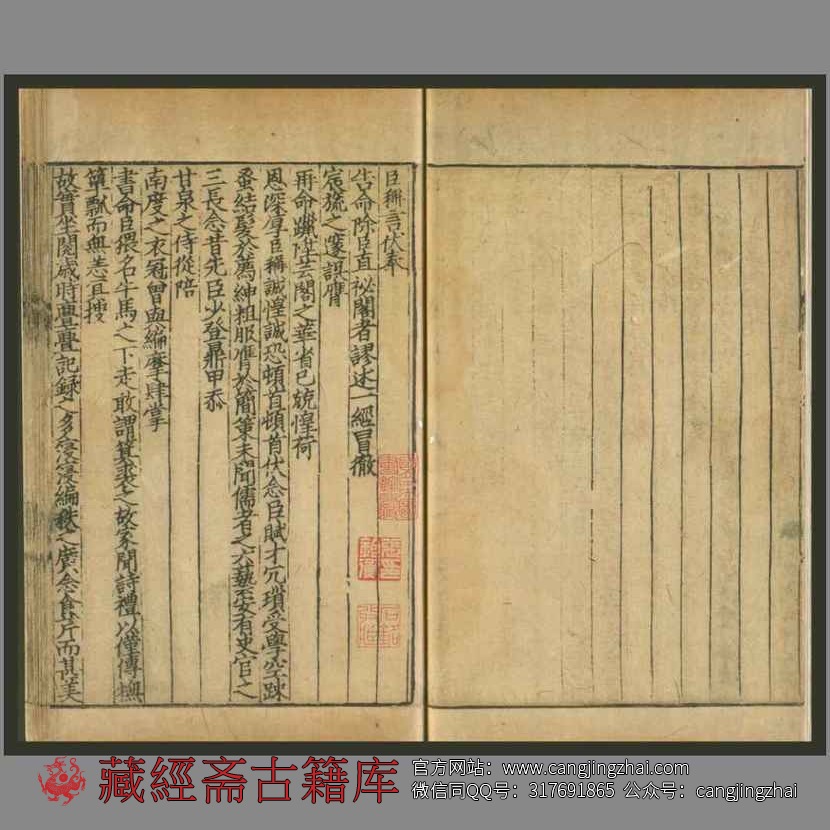 臣稱言伏奉
告命除臣直祕閣者謬述一經冒徹
宸旒之邃誤膺
再命躐陞芸閣之華省已兢惶荷
恩深厚臣稱誠惶誠恐頓首頓首伏念臣賦才冗瑣受學空踈
蚤結髮於薦紳粗服膺於簡策未聞儒者之六藝安有史官之
三長念昔先臣少登鼎甲忝
甘泉之侍從陪
南度之衣冠曾與編摩肆掌
書命臣猥名牛馬之下走敢謂箕裘之故家聞詩禮以僅傳撫
簞瓢而無恙宜搜
故實坐閱歳時亹亹記録之多寖寖編袟之廣念食芹而甚美
藏經斋古籍库
官方网站：www.cangjingzhai.com
微信同QQ号：317691865 公众号：cangjingzhai